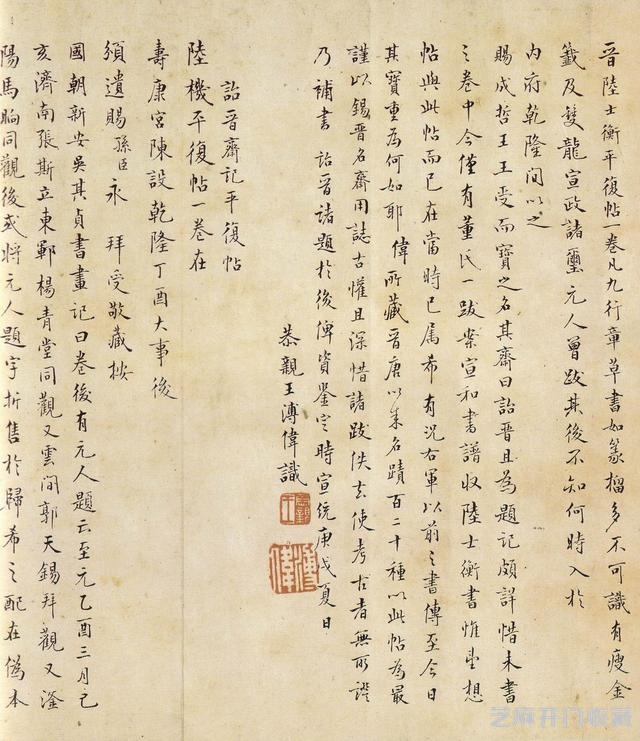 晉陸士衡平復帖一卷凡九行章草書如篆籀多不可識有瘦金
籤及雙龍宣政諸璽元人曾跋其後不知何時入於
內府乾隆間以之
賜成哲王王受而寶之名其齋曰詒晉且為題記頗詳惜未書
之卷中今僅有董氏一跋案宣和書譜收陸士衡書惟
帖與此帖而已在當時已屬希有況右軍以前之書傳至今日
其寶重為何如耶偉所藏晉唐以來名蹟百二十種以此帖為最
謹以錫晉名齋用誌古懽且深惜諸跋佚去使考古者無所證
乃補書詒晉諸題於後俾資鑒定時宣統庚戌夏日
恭親王溥偉識
詒晉齋記平復帖
陸機平復帖一卷在
壽康宮陳設乾隆丁酉大事後
頒遺賜孫臣永拜受敬藏按
國朝新安吳其貞書畫記曰卷後有元人題云至元乙酉三月己
亥濟南張斯立東鄆楊青堂同觀又雲間郭天錫拜觀又滏
陽馬昫同觀後或將元人題字折售於歸希之配在偽本
芝麻开门收藏